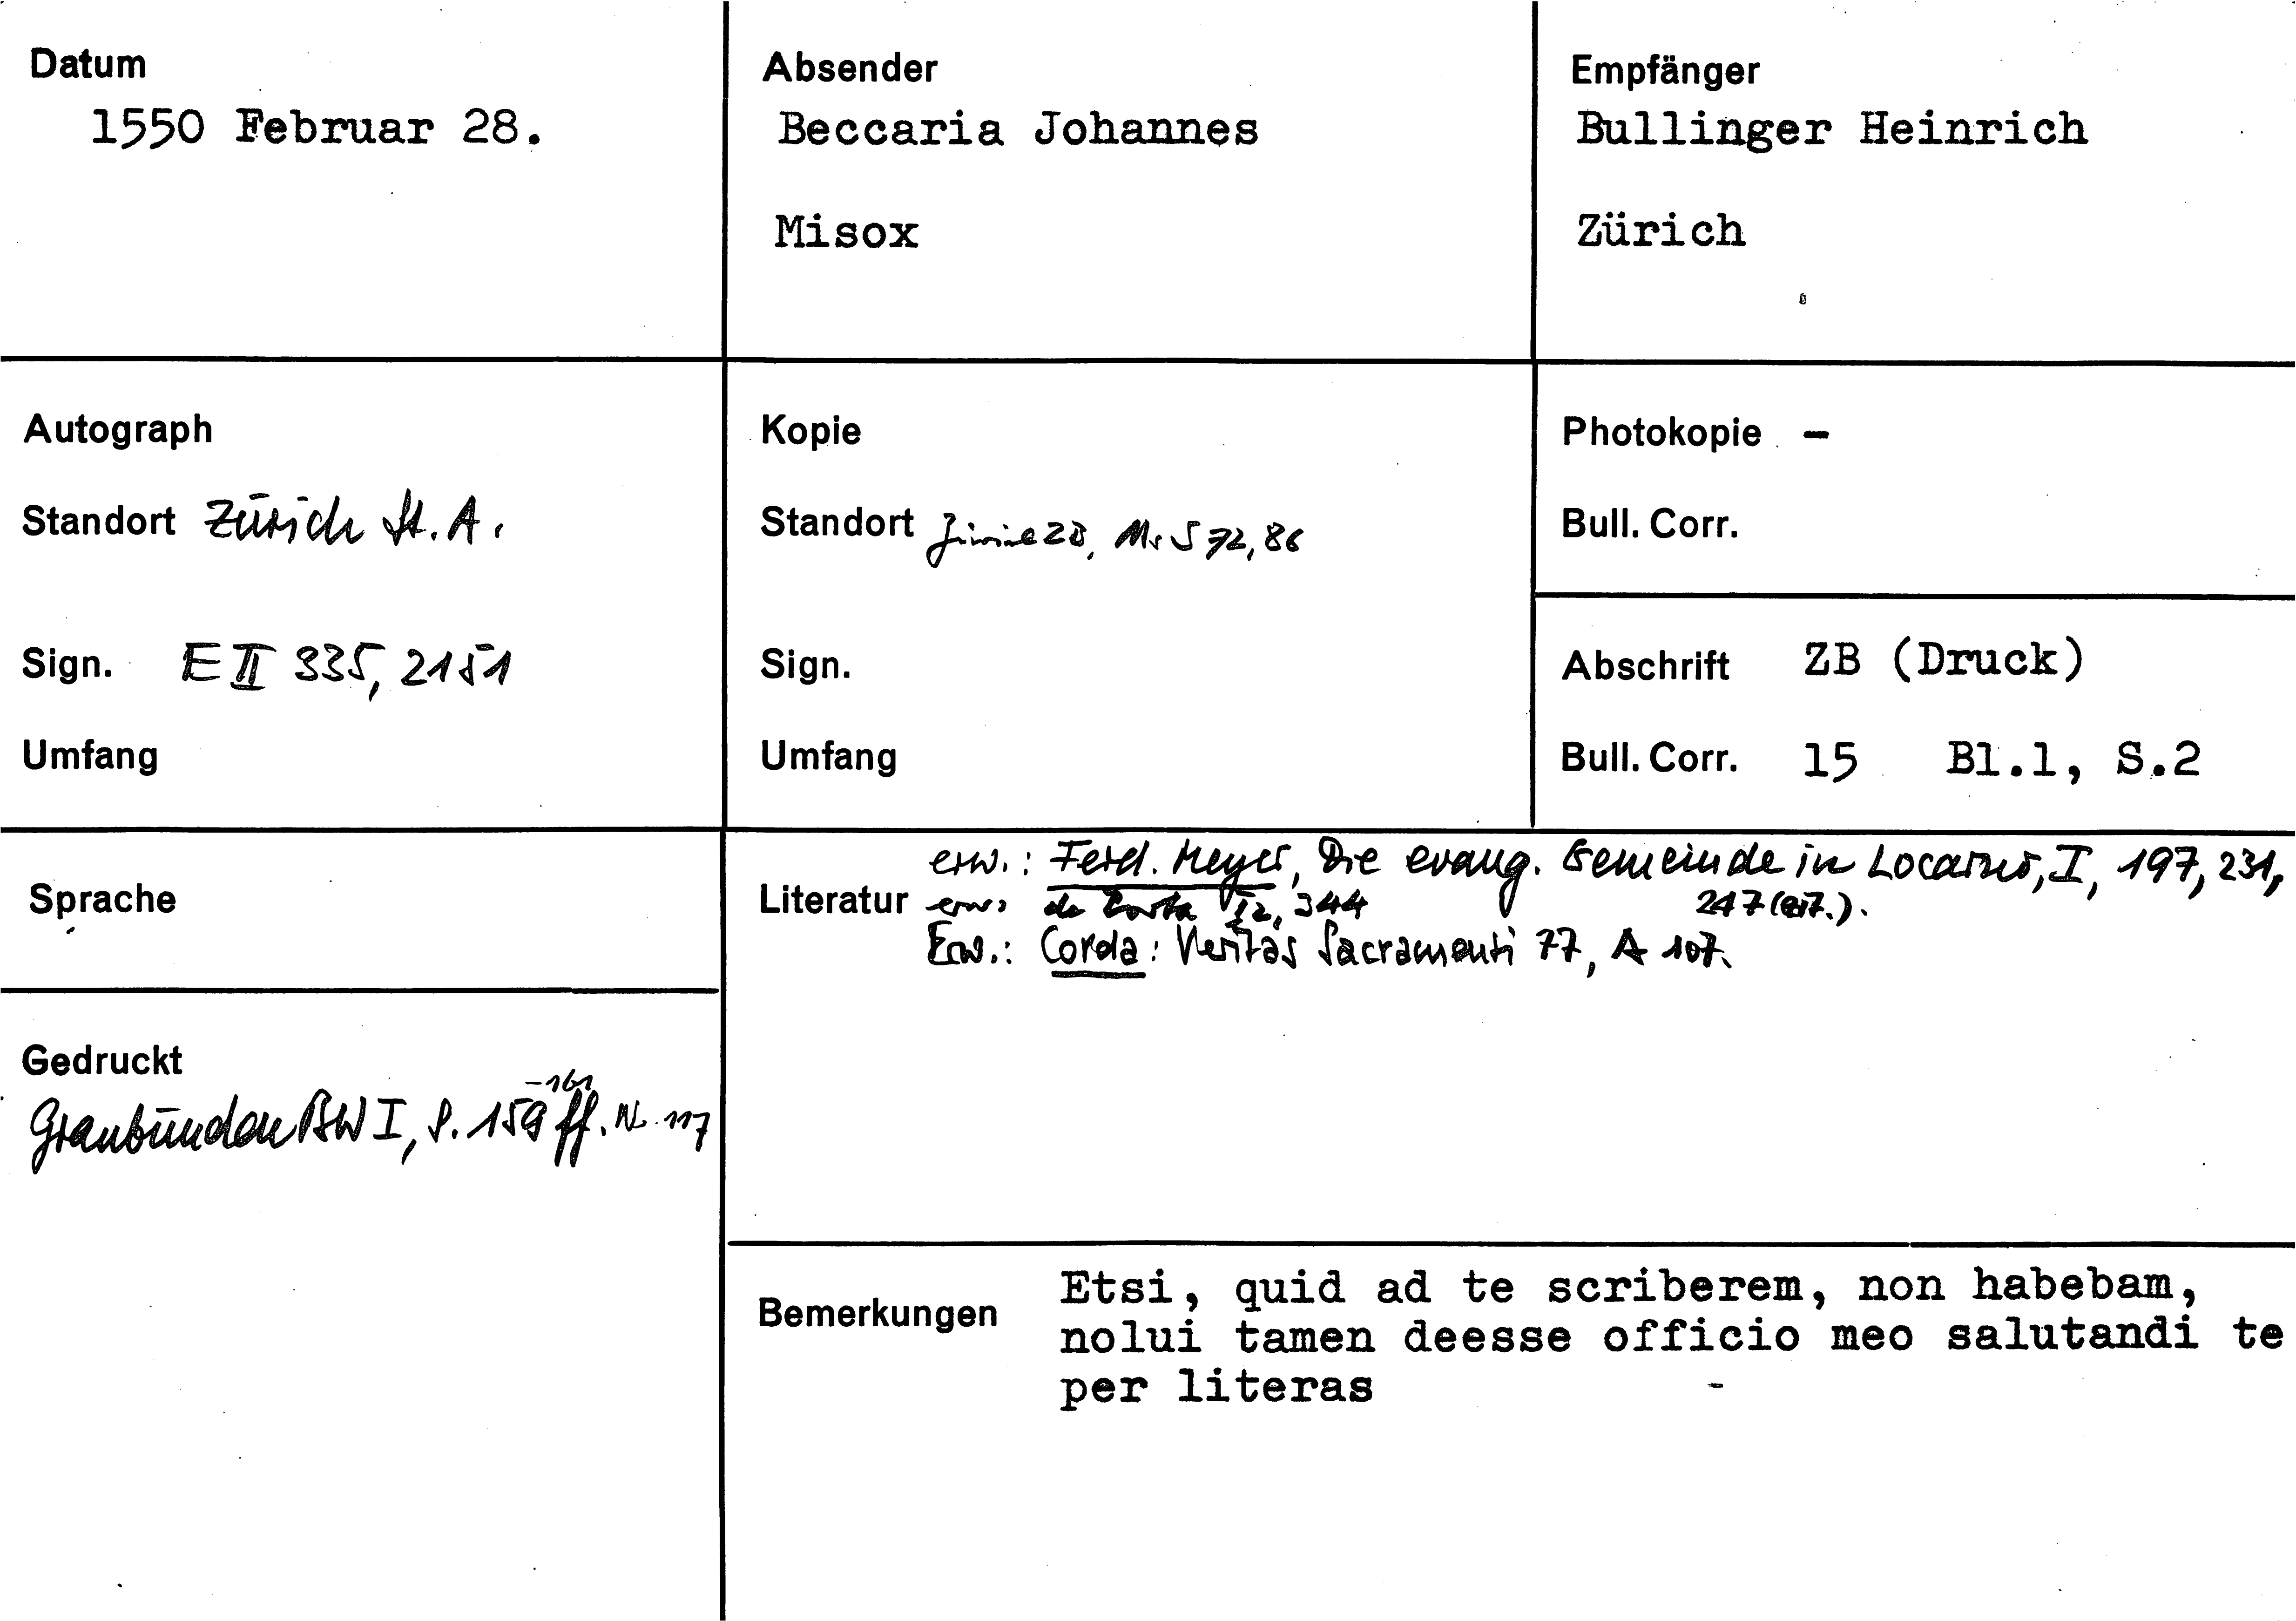 Datum
1550 Februar 28.
Absender
Beccaria Johannes
Misox
Empfänger
Bullinger Heinrich
Zürich
Autograph
Standort Zürich St. A.
Sign. E II 335, 2151
Umfang
Kopie
Standort ZB, Ms S 72, 86
Sign.
Umfang
Photokopie -
Bull. Corr.
Abschrift ZB (Druck)
Bull. Corr. 15 Bl.1, S.2
Sprache
Gedruckt
-161
Graubünden BW I, S. 159 ff. Nr. 117
Literatur
erw.: Ferd. Meyer, Die evang. Gemeinde in Locarno, I, 197, 231,
247 (zit.).
erw. de Porta I 2, 344
Erw.: Corda: Veritas Sacramenti 77, A 107.
Bemerkungen
Etsi, quid ad te scriberem, non habebam,
nolui tamen deesse officio meo salutandi te
per literas -